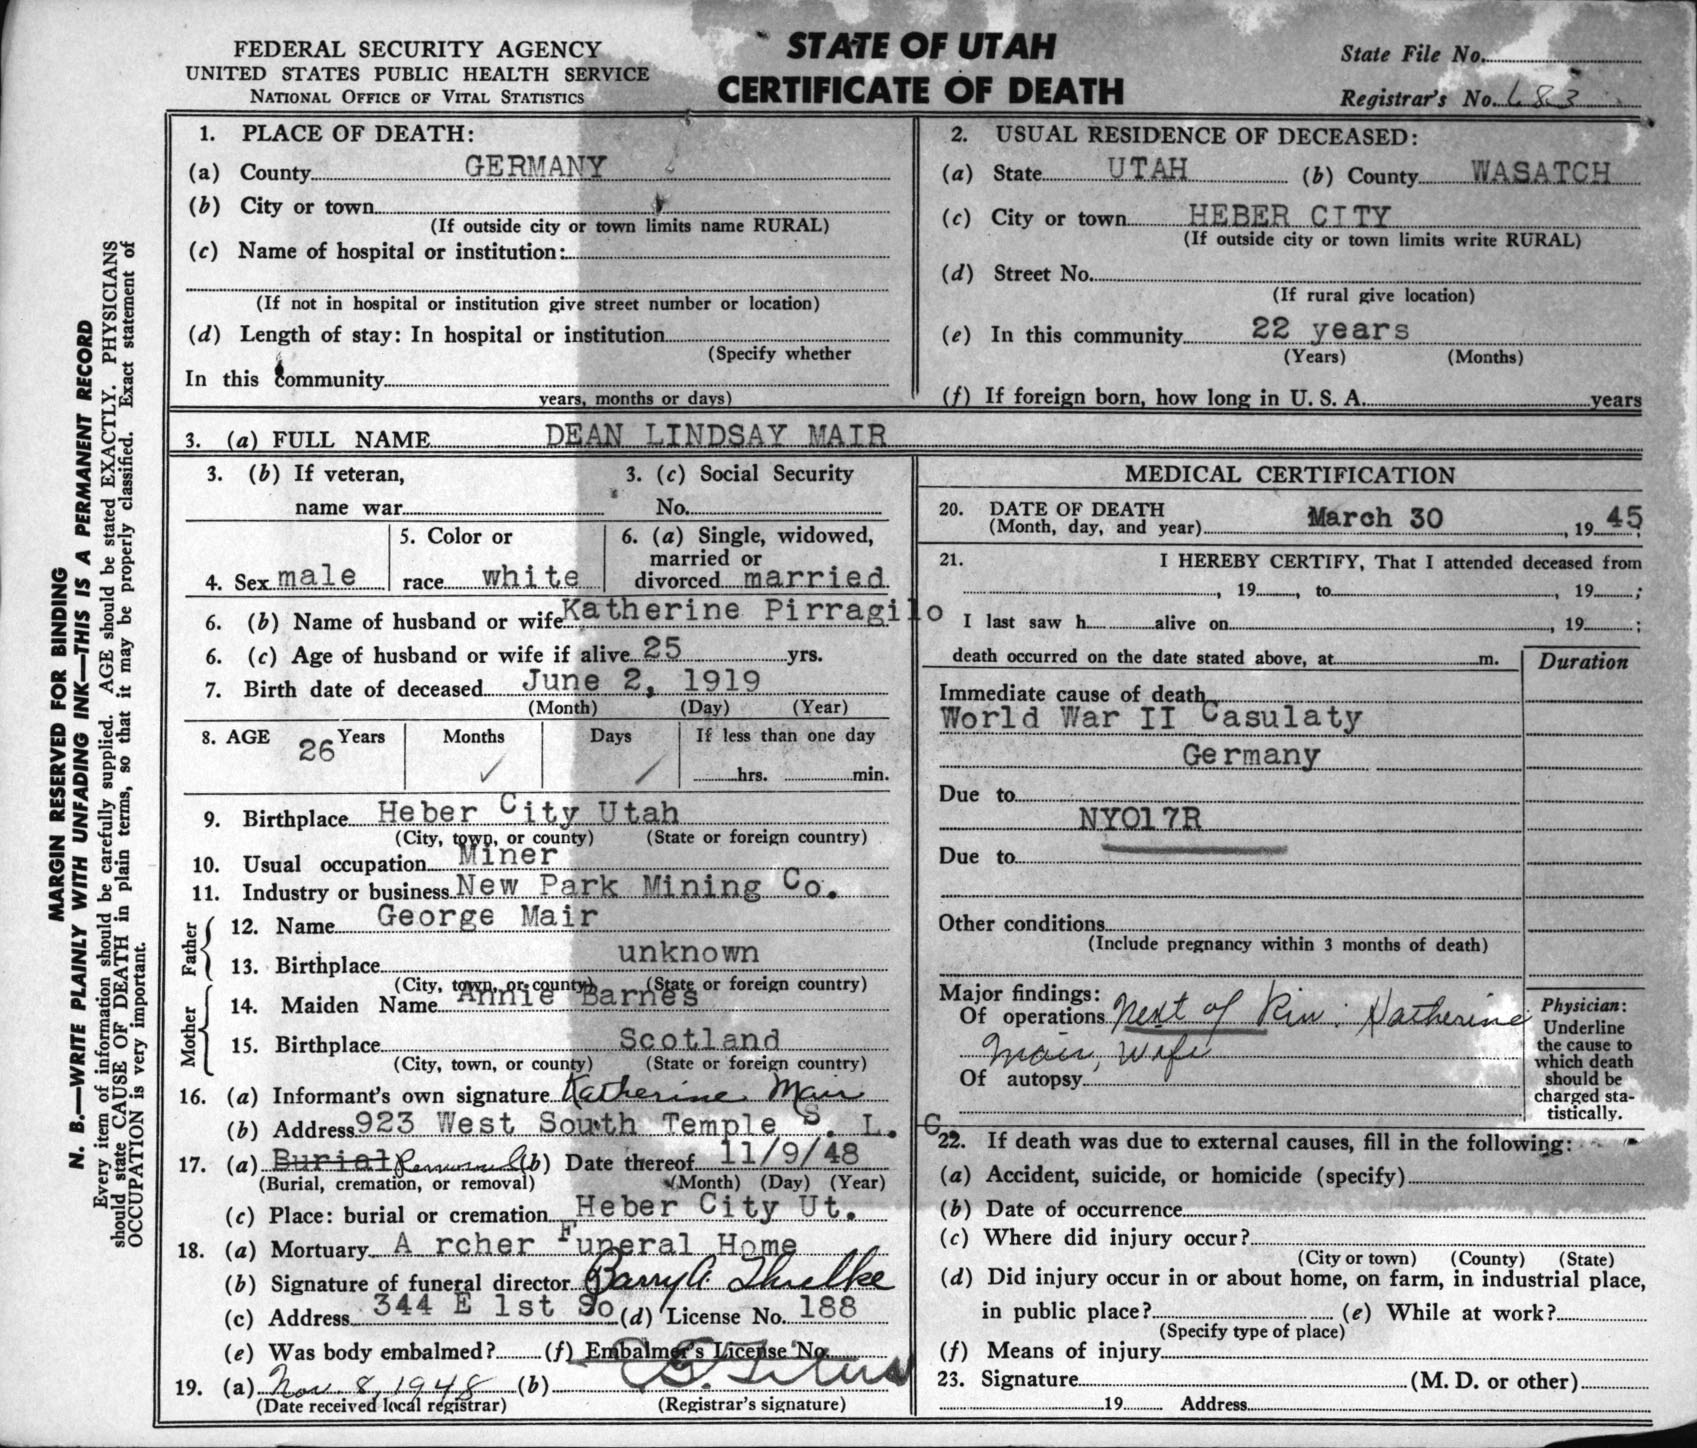 FEDERAL SECURITY AGENCY
UNITED STATES PUBLIC HEALTH SERVICE
NATIONAL OFFICE OF VITAL STATISTICS
STATE OF UTAH
CERTIFICATE OF DEATH
State File No.
Registrar's No. 683
1. PLACE OF DEATH:
(a) County GERMANY
(b) City or town
(If outside city or town limits name RURAL)
(c) Name of hospital or institution:
(If not in hospital or institution give street number or location)
(d) Length of stay: In hospital or institution
(Specify whether
In this community
years, months or days)
2. USUAL RESIDENCE OF DECEASED:
(a) State UTAH (b) County WASATCH
(c) City or town HEBER CITY
(If outside city or town limits write RURAL)
(d) Street No.
(If rural give location)
(e) In this community 22 years
(Years) (Months)
(f) If foreign born, how long in U. S. A. years
3. (a) FULL NAME DEAN LINDSAY MAIR
3. (b) If veteran,
name war
3. (c) Social Security
No.
4. Sex male
5. Color or
race white
6. (a) Single, widowed,
married or
divorced married
6. (b) Name of husband or wife Katherine Pirragilo
6. (c) Age of husband or wife if alive 25 yrs.
7. Birth date of deceased June 2, 1919
(Month) (Day) (Year)
8. AGE 26 Years Months Days If less than one day
hrs. min.
9. Birthplace Heber City Utah
(City, town, or county) (State or foreign country)
10. Usual occupation Miner
11. Industry or business New Park Mining Co.
Father
12. Name George Mair
13. Birthplace unknown
(City, town, or county) (State or foreign country)
Mother
14. Maiden Name Annie Barnes
15. Birthplace Scotland
(City, town, or county) (State or foreign country)
16. (a) Informant's own signature Katherine Mair
(b) Address 923 West South Temple S. L. C.
17. (a) Burial Removal (b) Date thereof 11/9/48
(Burial, cremation, or removal) (Month) (Day) (Year)
(c) Place: burial or cremation Heber City Ut.
18. (a) Mortuary A rcher Funeral Home
(b) Signature of funeral director
(c) Address 344 E 1st So (d) License No. 188
(e) Was body embalmed? (f) Embalmer's License No.
19. (a) Nov. 8, 1948 (b)
(Date received local registrar) (Registrar's signature)
MEDICAL CERTIFICATION
20. DATE OF DEATH
(Month, day, and year) March 30, 1945;
21. I HEREBY CERTIFY, That I attended deceased from
, 19 , to , 19 ;
I last saw h alive on , 19 ;
death occurred on the date stated above, at m.
Duration
Immediate cause of death
World War II Casulaty
Germany
Due to
NYO17R
Due to
Other conditions
(Include pregnancy within 3 months of death)
Major findings:
Of operations Next of Kin: Katherine
Mair, Wife
Of autopsy
Physician:
Underline
the cause to
which death
should be
charged sta-
tistically.
22. If death was due to external causes, fill in the following:
(a) Accident, suicide, or homicide (specify)
(b) Date of occurrence
(c) Where did injury occur?
(City or town) (County) (State)
(d) Did injury occur in or about home, on farm, in industrial place,
in public place? (e) While at work?
(Specify type of place)
(f) Means of injury
23. Signature (M. D. or other)
19 Address
MARGIN RESERVED FOR BINDING
N. B.—WRITE PLAINLY WITH UNFADING INK—THIS IS A PERMANENT RECORD
Every item of information should be carefully supplied. AGE should be stated EXACTLY. PHYSICIANS
should state CAUSE OF DEATH in plain terms, so that it may be properly classified. Exact statement of
OCCUPATION is very important.